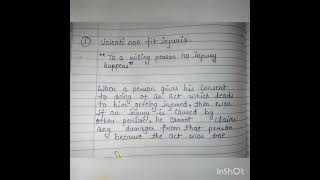 1 Volenti non fit injuria.
"To a willing person no injury
happens"
When a person gives his consent
to doing of an act which leads
to him getting injured, then even
if an injury is caused by
other person, he cannot claim
any damages from that person
because the act was one
InShOt